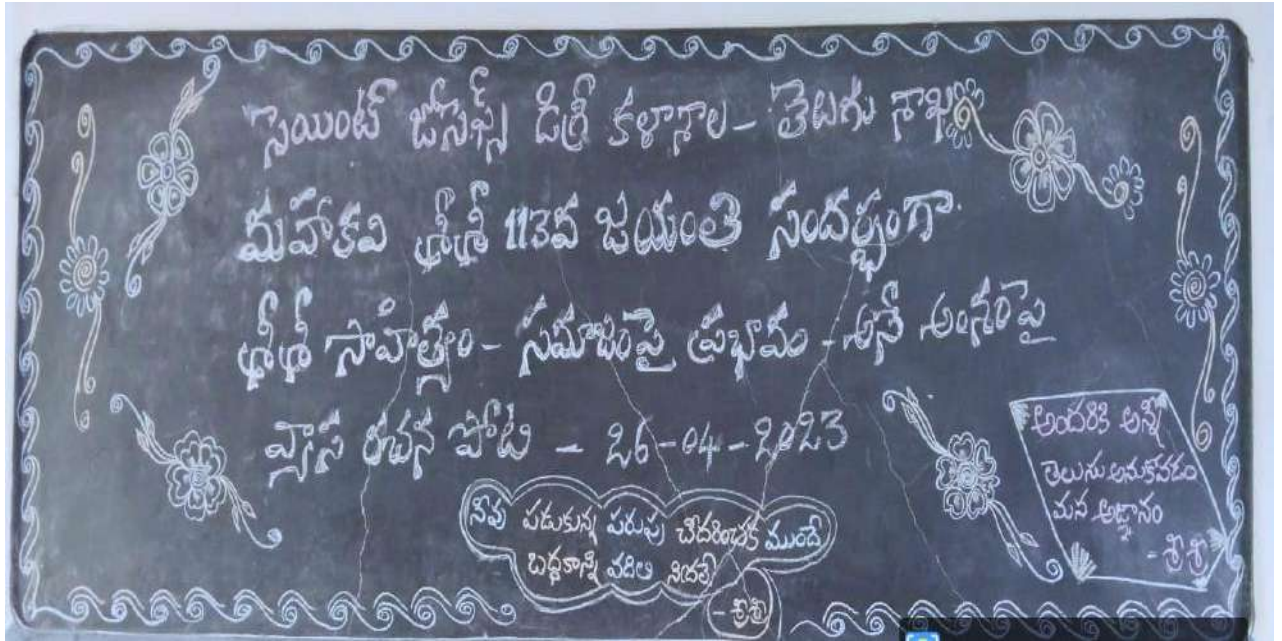 సెయింట్ జోసెఫ్స్ డిగ్రీ కళాశాల - తెలుగు శాఖ
మహాకవి శ్రీశ్రీ 113వ జయంతి సందర్భంగా
శ్రీశ్రీ సాహిత్యం - సమాజంపై ప్రభావం - అనే అంశంపై
వ్యాస రచన పోటీ - 26-04-2023
నీవు పడుకున్న పరుపు చీదరించక ముందే
బద్ధకాన్ని వదిలి నిదర్లే
- శ్రీశ్రీ
అందరికి అన్ని
తెలుసు అనుకోవడం
మన అజ్ఞానం
- శ్రీ శ్రీ